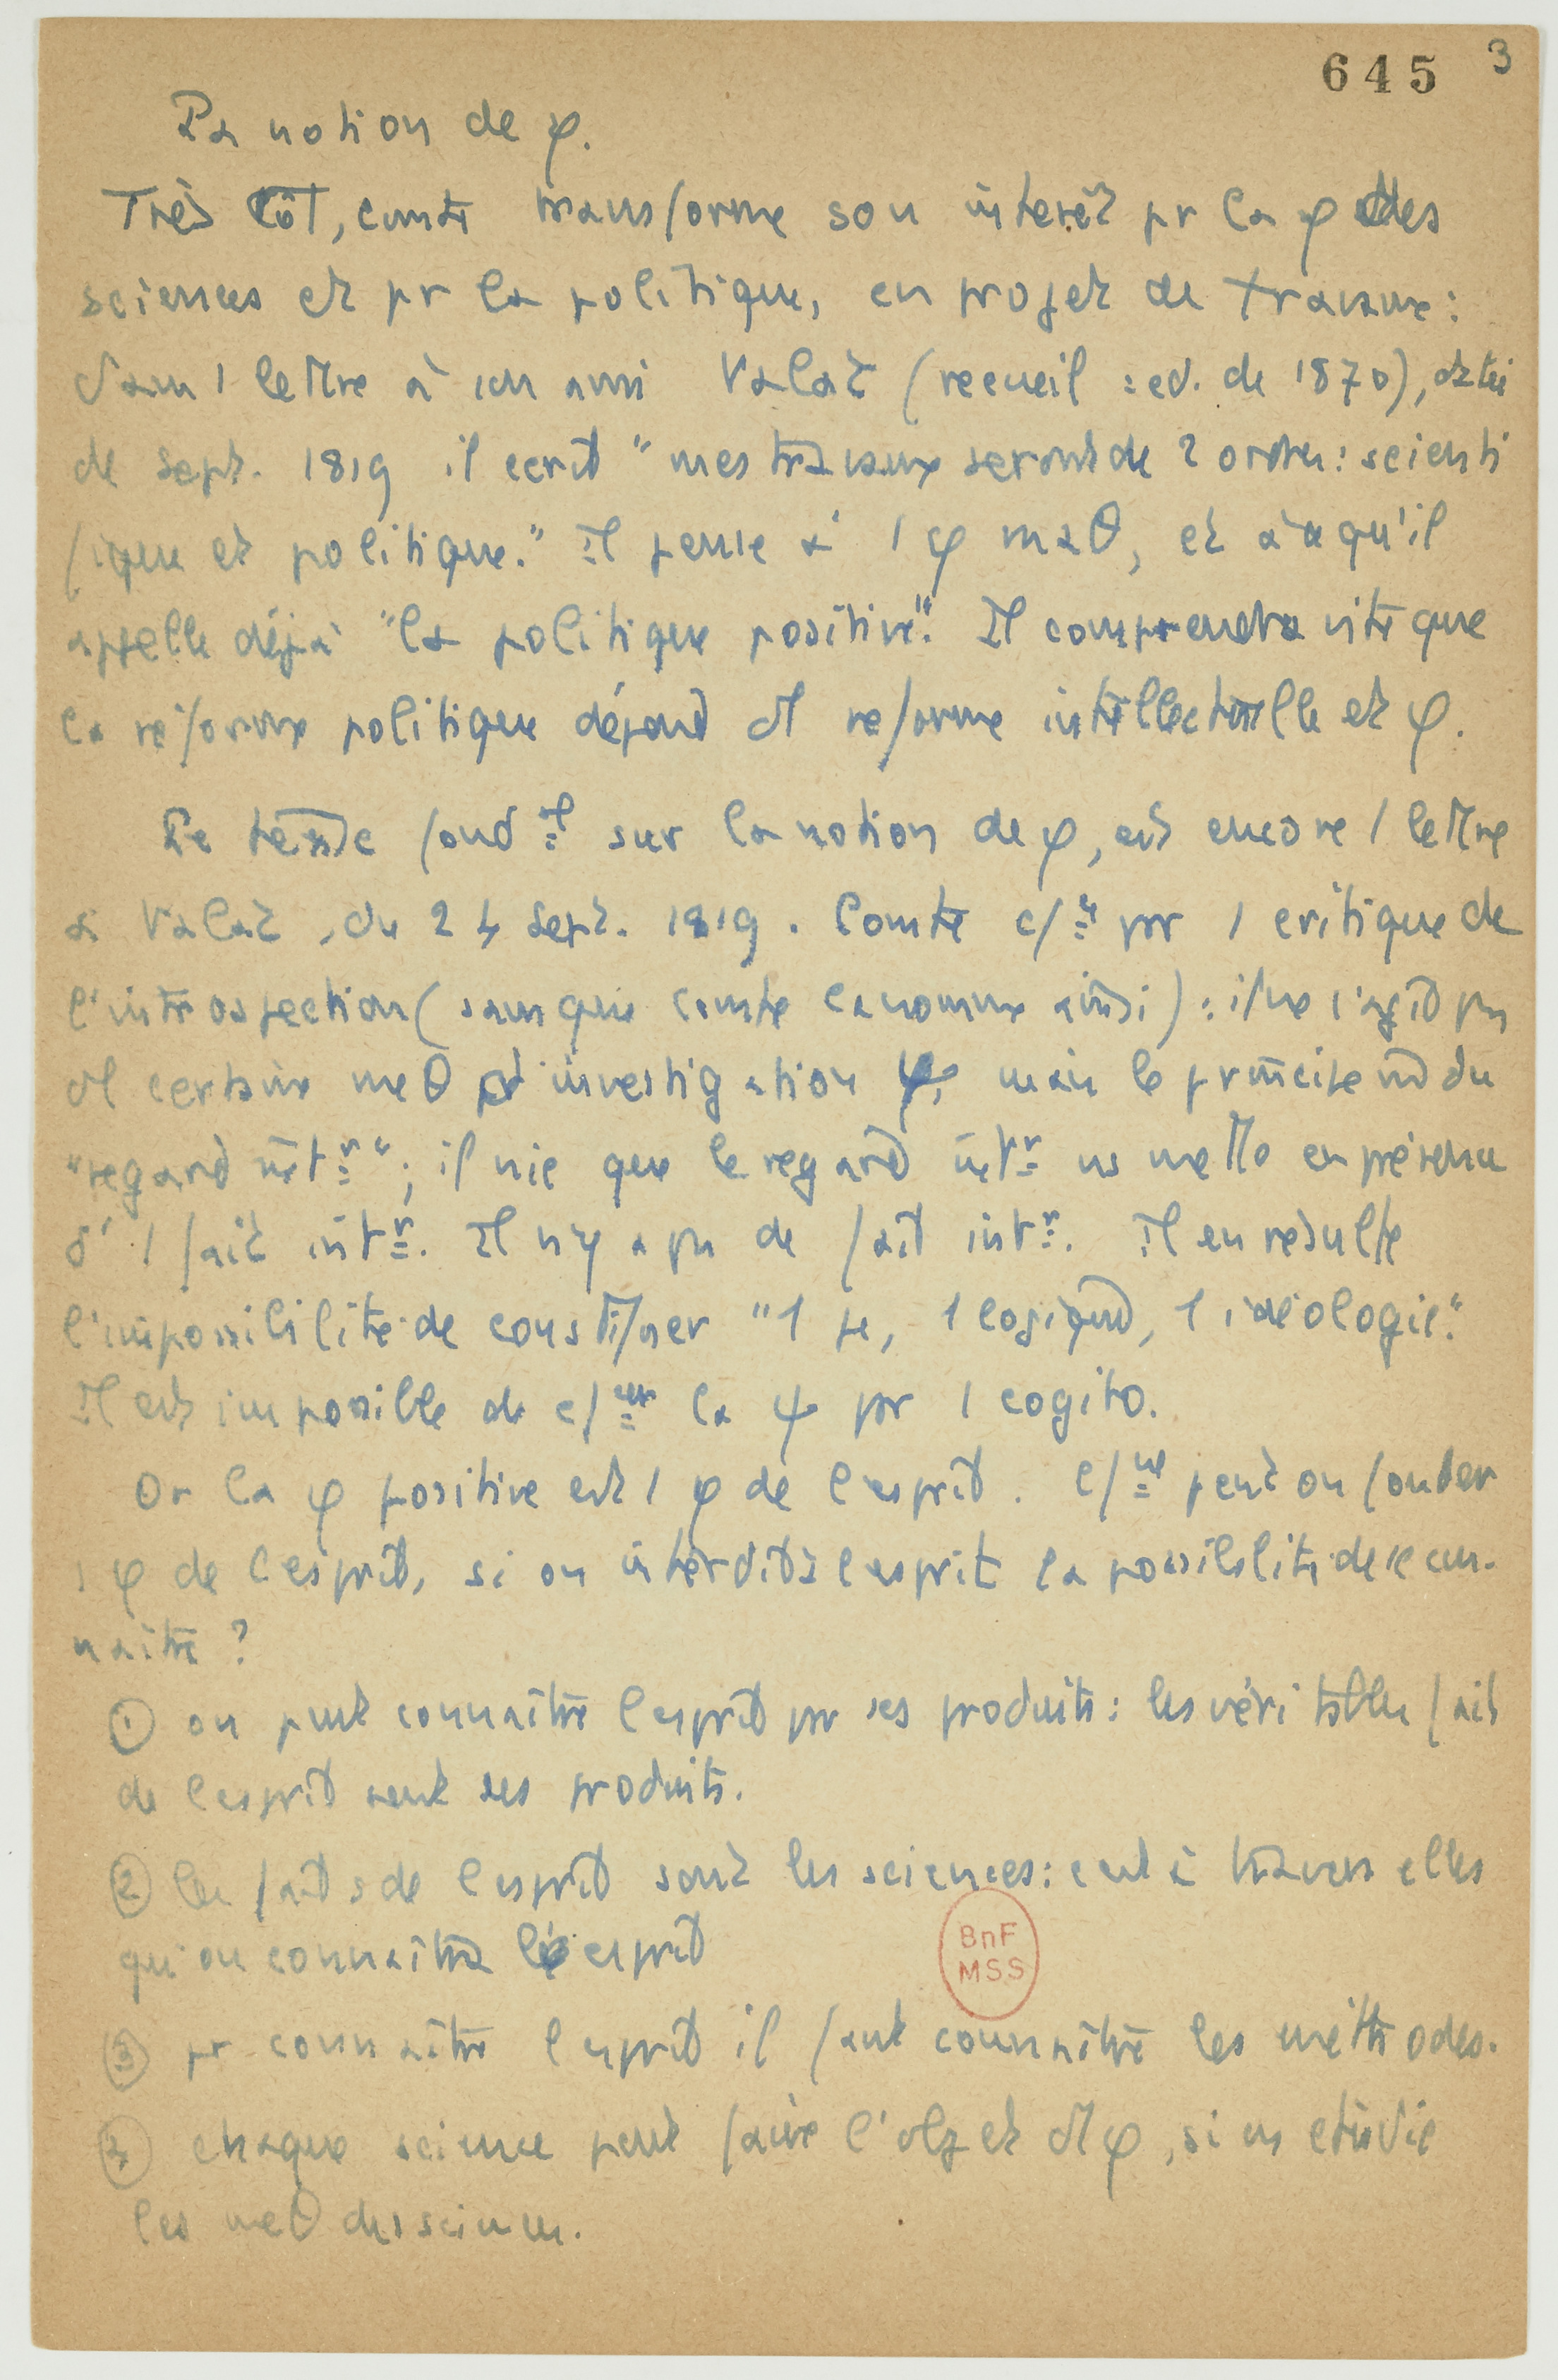 645 3
La notion de φ.
Très tôt, comte transforme son intérêt pr la φ des
sciences et pr la politique, en projet de travaux :
dans 1 lettre à son ami Valat (recueil : ed. de 1870), datée
de sept. 1819 il écrit "mes travaux seront de 2 ordres : scienti
fique et politique." Il pense à 1 φ maθ, et à ce qu'il
appelle déjà "la politique positive". Il comprendra vite que
la réforme politique dépend d'1 réforme intellectuelle et φ.
Le texte fondal sur la notion de φ, est encore 1 lettre
à Valat, du 24 sept. 1819. Comte c/ce par 1 critique de
l'introspection (sans que comte la nomme ainsi) : il ne s'agit pas
d'1 certaine meθ d'investigation ψ, mais le principe md du
"regard intr" ; il nie que le regard intr ns mette en présence
d'1 fait intr. Il n'y a pas de fait intr. Il en résulte
l'impossibilité de constituer "1 ψe, 1 logique, 1 idéologie".
Il est impossible de c/cer la φ par 1 cogito.
Or la φ positive est 1 φ de l'esprit. C/me peut on fonder
1 φ de l'esprit, si on interdit à l'esprit la possibilité de se con-
naître ?
① on peut connaître l'esprit par ses produits : les véritables faits
de l'esprit sont ses produits.
② les faits de l'esprit sont les sciences : c'est à travers elles
qu'on connaîtra l'esprit
③ pr connaître l'esprit il faut connaître les méthodes.
④ chaque science peut faire l'objet d'1 φ, si on étudie
les meθ des sciences.
BnF
MSS